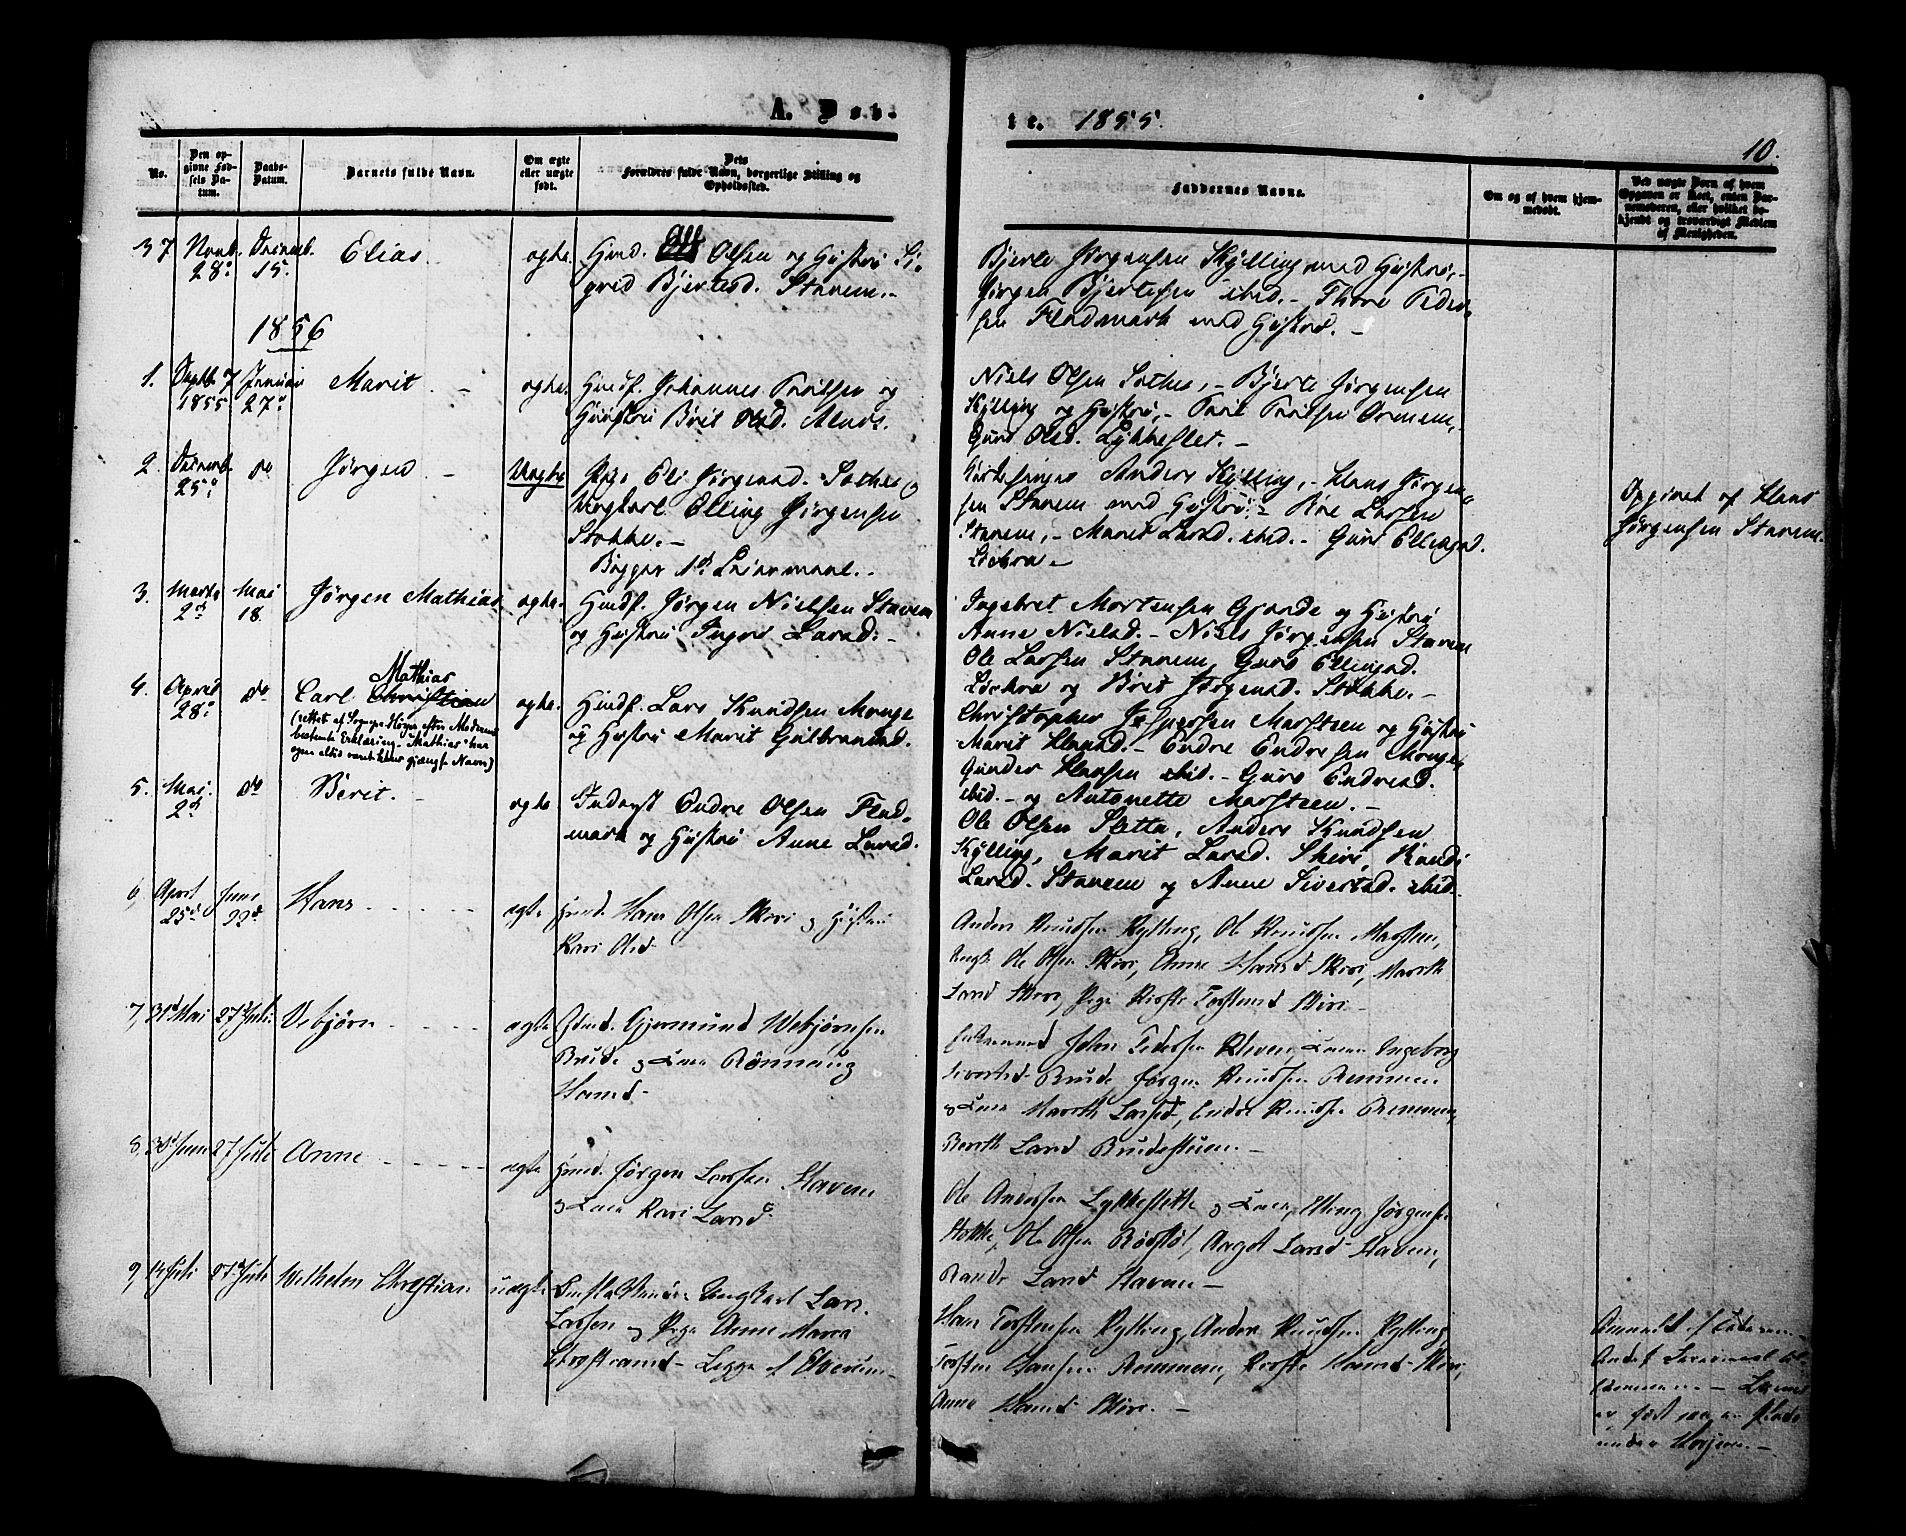 A. Døb-
te. 1855.
10.
No.
Den op-
givne Fød-
sels Da-
tum.
Daabs-
Datum.
Barnets fulde Navn.
Om ægte
eller uægte
født.
Dets
Forældres fulde Navn, borgerlige Stilling og
Opholdssted.
Faddernes Navne.
Om og af hvem hjem-
medøbt.
Ved uægte Børn af hvem
Opgaven er skeet, enten Bar-
nemoderen, eller hvilket be-
kjendt og troværdigt Medlem
af Menigheden.
37 Novb. 28de Decemb. 15. Elias ægte. Gmd. Ole Olsen og Hustru Si-
grid Bjertesd. Stavem.
Bjerte Jørgensen Kylling med Hustru,
Jørgen Bjertesen ibid. - Thore Peder-
sen Fladmark med Hustru. -
1856
1. 7 1855 Januar 27de Marit. - ægte. Gmdf. Johannes Povelsen og
Hustru Brit Olsd. Alnæs.
Niels Olsen Sothe, - Bjerte Jørgensen
Kylling og Hustru, - Povel Povelsen Ormem,
Guro Olsd. Lykkeslet. -
2. Decemb. 25de do Jørgen - Uægte Pige Eli Jørgensd. Sothe og
Ungkarl Elling Jørgensen
Stokke. -
Begges 1ste Leiermaal. -
Kirkesanger Anders Kylling, - Hans Jørgen-
sen Stavem med Hustru, - Lassen
Stavem, - Marit Larsd. ibid. - Guro Ellingsd.
Opgivet af Hans
Jørgensen Stavem.
3. Marts 2d Mai 18. Jørgen Mathias ægte. Gmdf. Jørgen Nielsen Stavem
og Hustru Ingri Larsd. -
Ingebret Mortensen Gjerde og Hustru
Anne Nielsd. - Niels Jørgensen Stavem
Ole Larssen Stavem, Guro Ellingsd.
og Brit Jørgensd. Stokke. -
4. April 28de do Carl Christian Mathias
(rettet af Sogneprest efter Moderens
bestemte Erklæring. "Mathias" har
ogsaa altid været hans Navn)
ægte. Gmdf. Lars Knudsen Monge
og Hustru Marit Gulbrandsd.
Christopher Jespersen Marsteen og Hustru
Marit Hansd. - Endre Endresen Monge,
Gunder Hansen ibid. - Guro Endresd.
ibid. - og Antonette Marsteen. -
5. Mai 2d do Berit. - ægte Inderst Endre Olsen Flad-
mark og Hustru Anne Larsd.
Ole Olsen Sletta, Anders Knudsen
Kylling, Marit Larsd. Skiri, Randi
Larsd. Stavem og Anne Sivertsd. ibid.
6, April 25de Juni 22de Hans ægte Gmd. Hans Olsen Skiri og Hustru
Kari Olsd
Anders Knudsen Kylling, Ole Knudsen Marsten,
Ungk. Ole Olsen Skiri, Anne Hansd Skiri, Marith
Larsd Skiri, Pige Kirsti Torstensd Skiri -
7, 31te Mai 27de Juli Vebjørn ægte Gmd. Gjermund Webjørnsen
Brude og Kone Rønnaug
Hansd -
John Pedersen Kleven, Kone Ingeborg
Sivertsd Brude, Jørgen Knudsen Remmem
og Kone Marith Larsd, Endre Knudsen Remmem,
Berith Larsd Brudestuen. -
8, 30te Juni 27 Juli Anne ægte Gmd. Jørgen Larssen Stavem
og Kone Kari Larsd
Ole Andersen Lykkeslette og Kone, Elling Jørgensen
Stokke, Ole Olsen Rødstøl, Aagot Larsd Stavem,
Rande Larsd Stavem -
9, 14 Juli 27de Juli Wilhelm Christian uægte Ungkarl Lars
Larssen og Pige Anne Maria
Begge af Elverum
Hans Torstensen Kylling, Anders Knudsen Kylling,
Torsten Hansen Remmem, Kirsti Hansd Skiri,
Anne Hansd Skiri. -